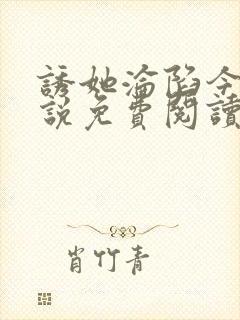 誘她淪陷今
說免費閱讀
肖竹青